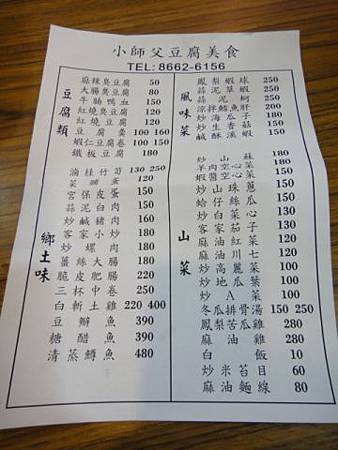 小師父豆腐美食
TEL: 8662-6156
豆腐類
麻辣臭豆腐 50
大腸臭豆腐 80
牛腩鴨血 150
紅燒臭豆腐 120
紅燒豆腐 120
豆腐羹 100 160
蝦仁豆腐卷 100 150
鐵板豆腐 180
鄉土味
滷桂竹筍 130 250
菜脯蛋 120
宮保皮蛋 150
蒜泥白肉 150
炒鹹豬肉 150
客家小炒 150
炒螺肉 180
薑絲大腸 180
脆皮肥腸 220
三杯中卷 250
白斬土雞 220 400
豆瓣魚 390
糖醋魚 390
清蒸鱒魚 480
風味菜
鳳梨蝦球 250
蒜泥草蝦 250
蒜泥蚵 250
涼拌鱈魚肝 200
炒海瓜子 180
炒生香菇 150
鹹酥溪蝦 150
山菜
炒山蘇 180
羊肉空心菜 180
蝦醬空心菜
炒水蓮
炒珠蔥
蛤仔絲瓜
炒白菜心
客家茄子
麻油紅菜
炒川七
炒高麗菜 100
炒地瓜葉 100
炒A菜 100
冬瓜排骨湯 150 250
鳳梨苦瓜雞 280
麻油雞 280
白飯 10
炒米苔目 60
麻油麵線 80